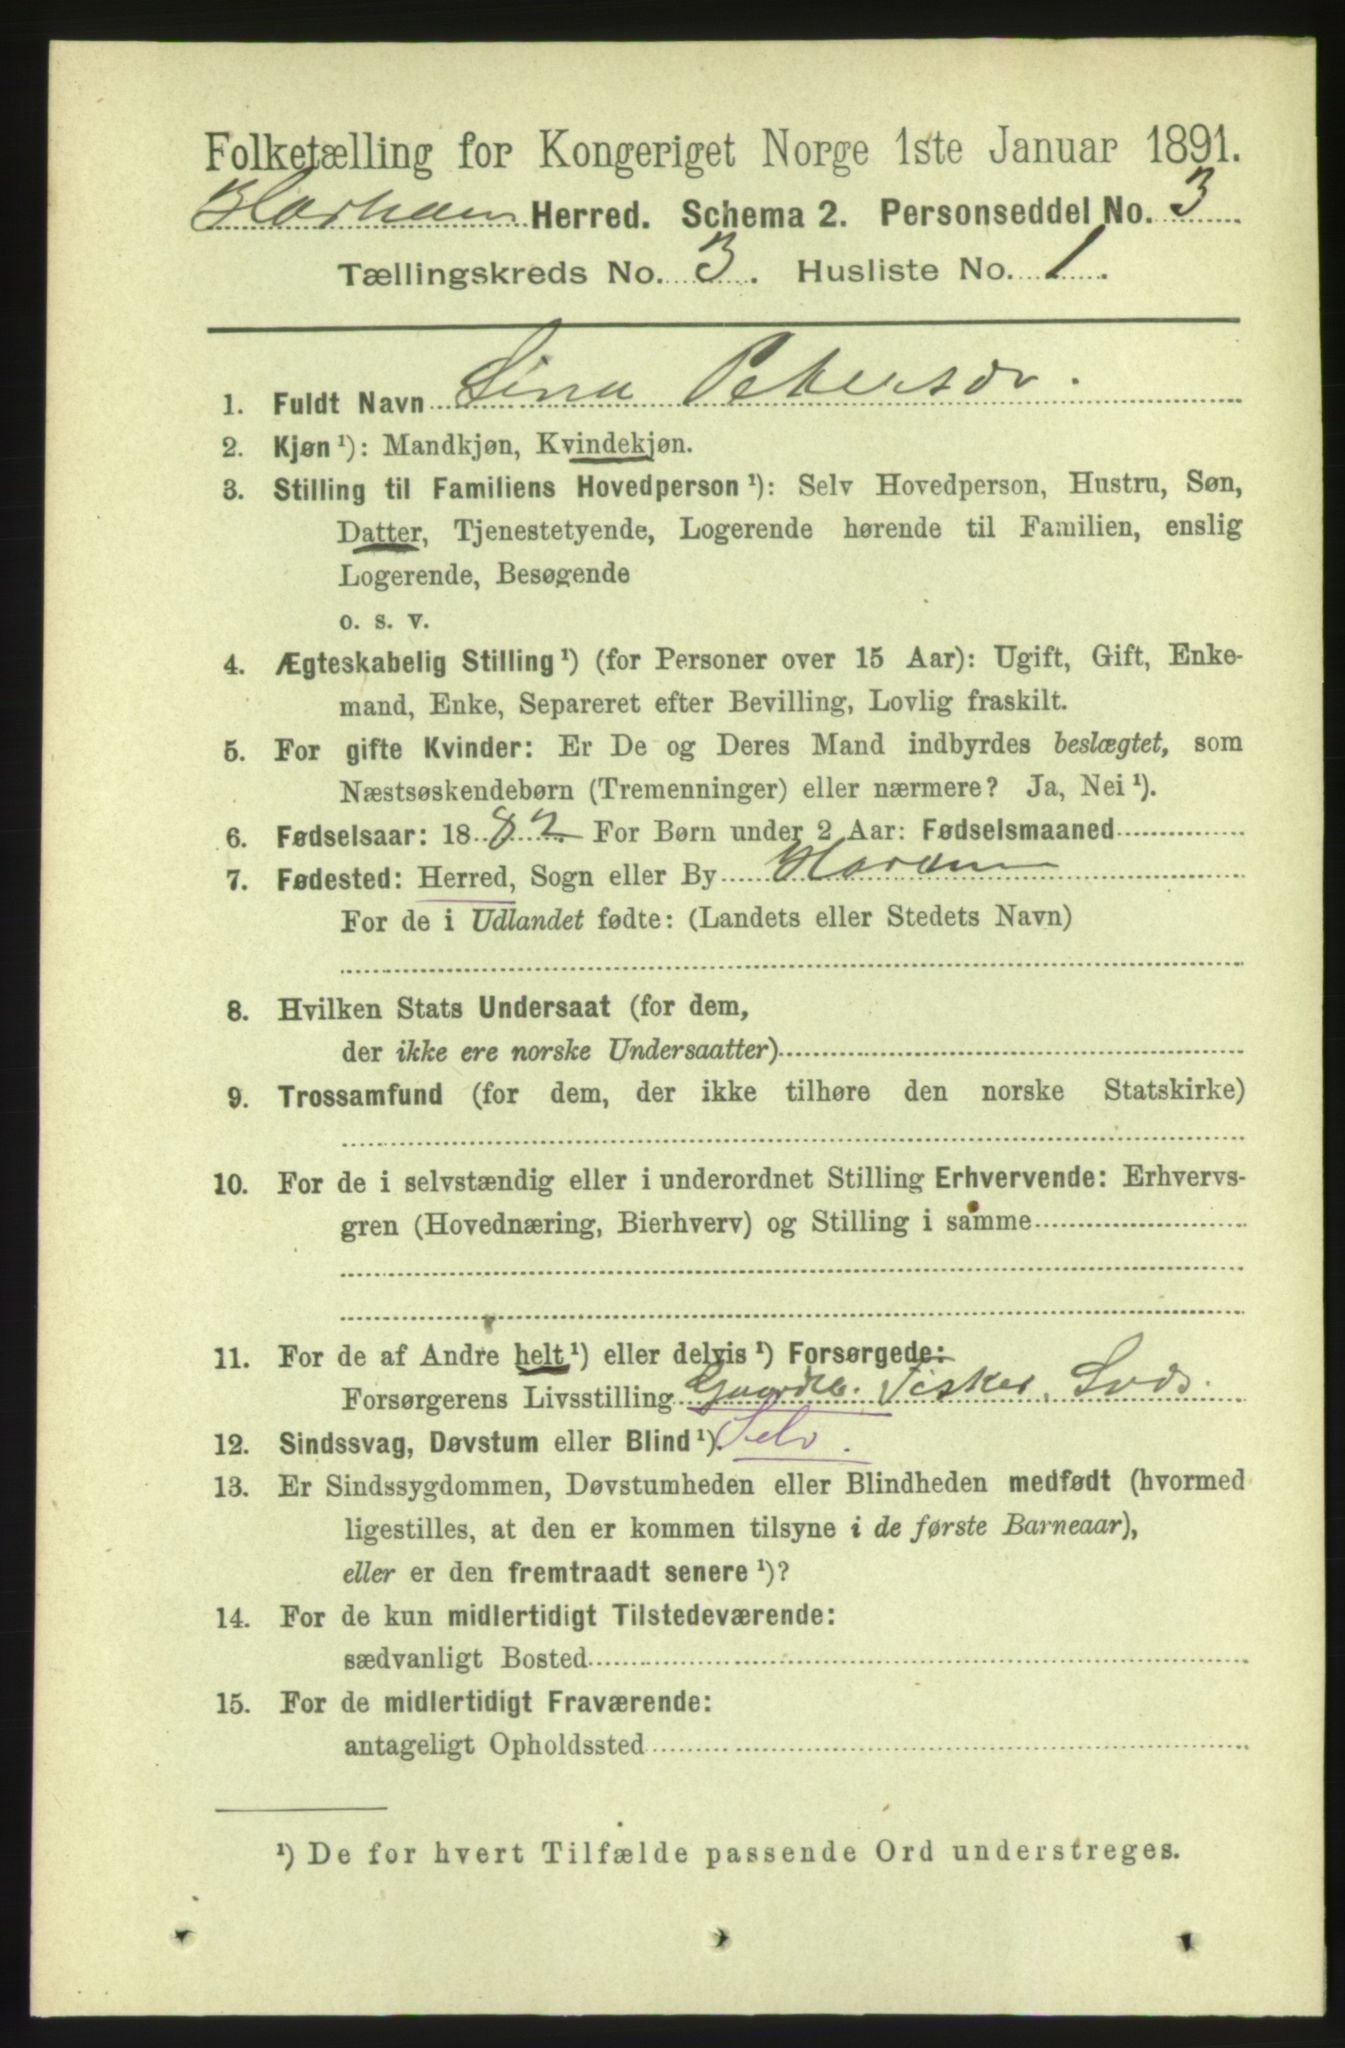 Folketælling for Kongeriget Norge 1ste Januar 1891.
Harham Herred. Schema 2. Personseddel No. 3
Tællingskreds No. 3. Husliste No. 1.
1. Fuldt Navn Lina Petersdr.
2. Kjøn ¹): Mandkjøn, Kvindekjøn.
3. Stilling til Familiens Hovedperson ¹): Selv Hovedperson, Hustru, Søn,
Datter, Tjenestetyende, Logerende hørende til Familien, enslig
Logerende, Besøgende
o. s. v.
4. Ægteskabelig Stilling ¹) (for Personer over 15 Aar): Ugift, Gift, Enke-
mand, Enke, Separeret efter Bevilling, Lovlig fraskilt.
5. For gifte Kvinder: Er De og Deres Mand indbyrdes beslægtet, som
Næstsøskendebørn (Tremenninger) eller nærmere? Ja, Nei ¹).
6. Fødselsaar: 1882 For Børn under 2 Aar: Fødselsmaaned
7. Fødested: Herred, Sogn eller By Haram
For de i Udlandet fødte: (Landets eller Stedets Navn)
8. Hvilken Stats Undersaat (for dem,
der ikke ere norske Undersaatter)
9. Trossamfund (for dem, der ikke tilhøre den norske Statskirke)
10. For de i selvstændig eller i underordnet Stilling Erhvervende: Erhvervs-
gren (Hovednæring, Bierhverv) og Stilling i samme
11. For de af Andre helt ¹) eller delvis ¹) Forsørgede:
Forsørgerens Livsstilling Gaardb. Fisker,
12. Sindssvag, Døvstum eller Blind ¹). Selv.
13. Er Sindssygdommen, Døvstumheden eller Blindheden medfødt (hvormed
ligestilles, at den er kommen tilsyne i de første Barneaar),
eller er den fremtraadt senere ¹)?
14. For de kun midlertidigt Tilstedeværende:
sædvanligt Bosted
15. For de midlertidigt Fraværende:
antageligt Opholdssted
¹) De for hvert Tilfælde passende Ord understreges.